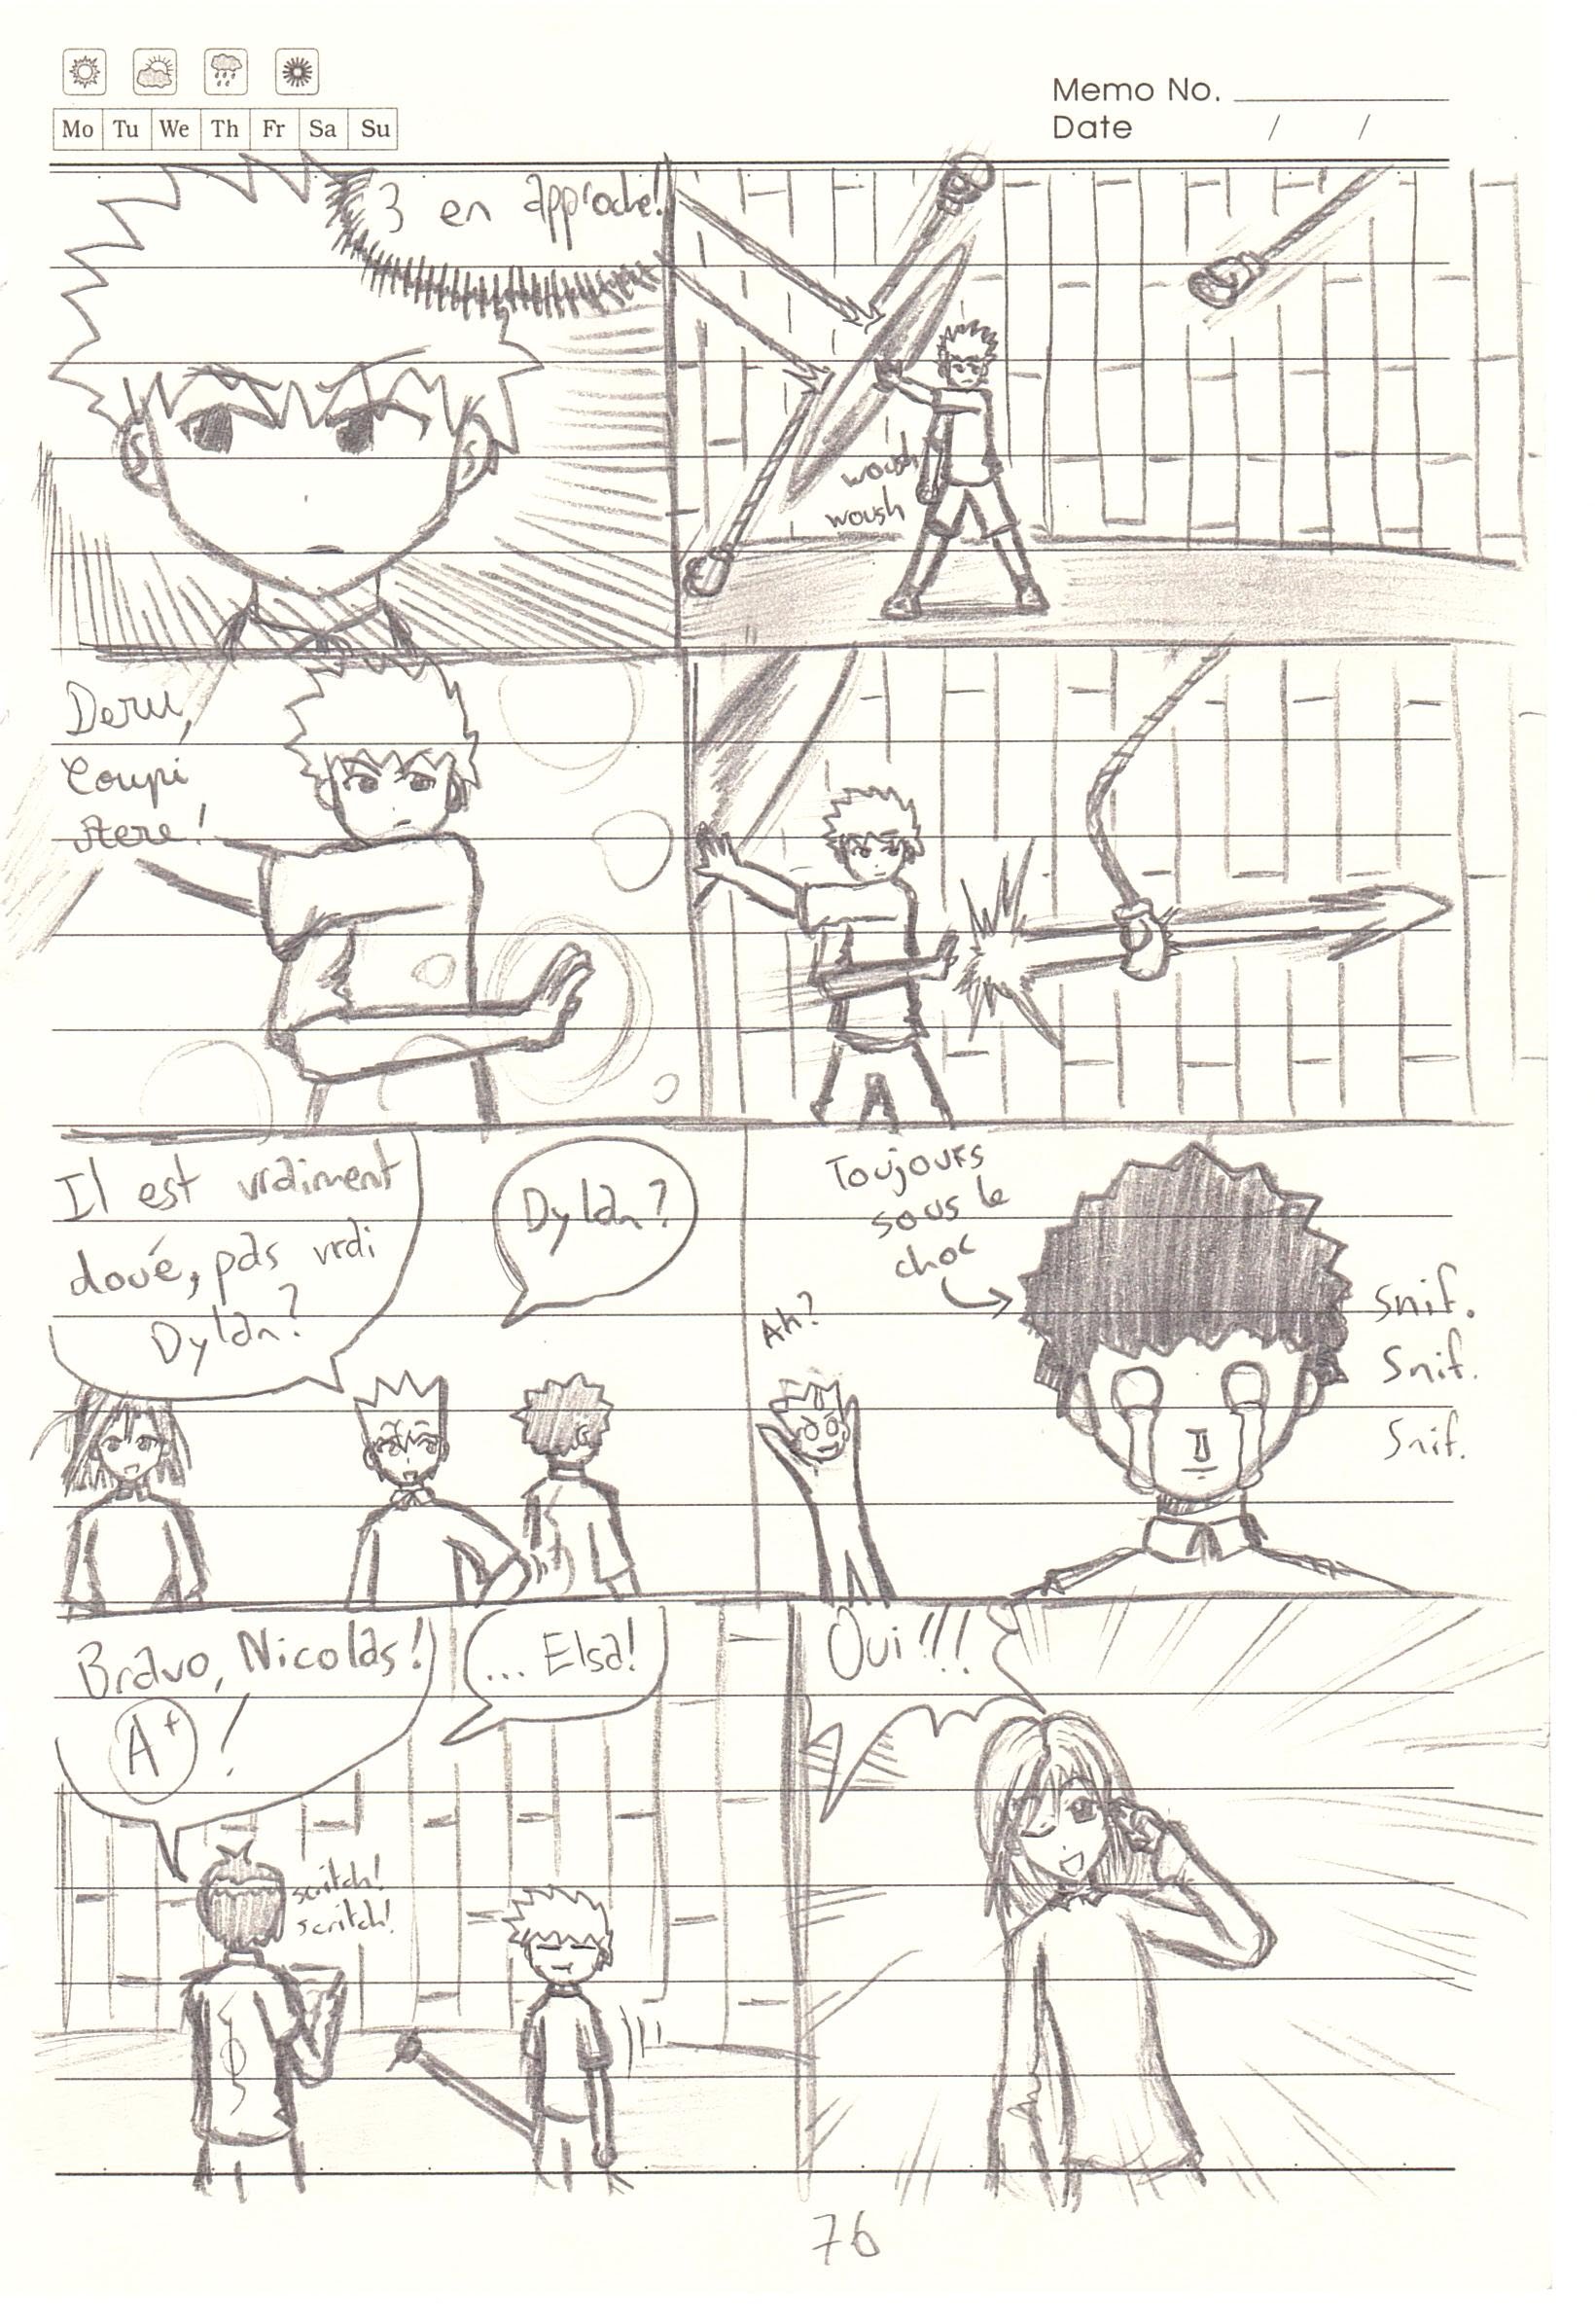 Memo No.
Date / /
Mo Tu We Th Fr Sa Su
3 en approche!
woush
woush
Deru,
Coupi
Here!
Il est vraiment
doué, pas vrai
Dylan?
Dylan?
Toujours
sous le
choc
Ah?
Snif.
Snif.
Snif.
Bravo, Nicolas!
A+!
... Elsa!
scritch!
scritch!
Oui!!!
76